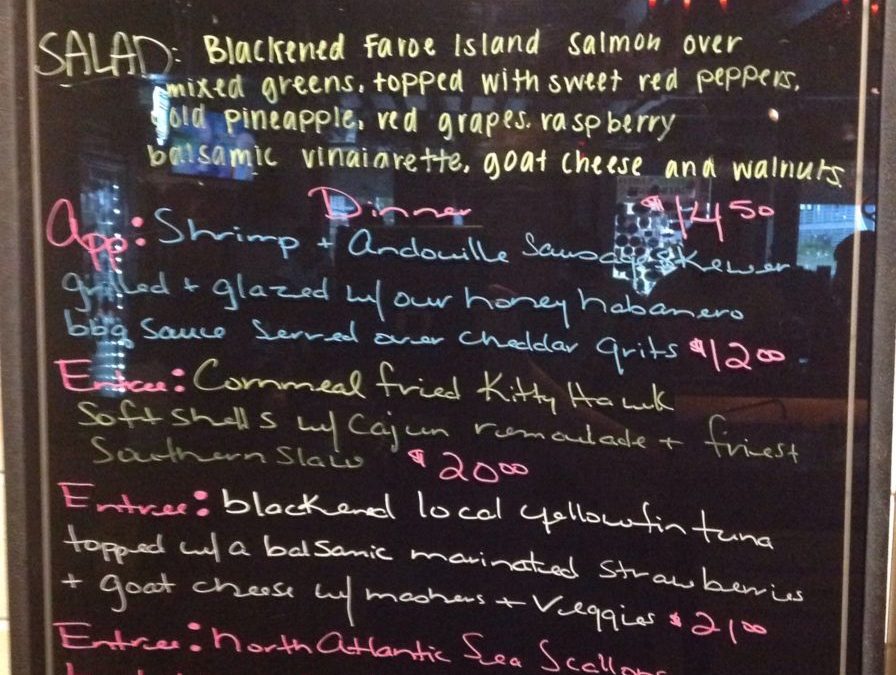 SALAD: Blackened Faroe Island Salmon over
mixed greens, topped with sweet red peppers,
gold pineapple, red grapes, raspberry
balsamic vinaiarette, goat cheese and walnuts
$14.50
Dinner
App: Shrimp + Andouille Sausage Skewer
grilled + glazed w/ our honey habanero
bbq sauce served over cheddar grits $12.00
Entree: Cornmeal fried Kitty Hawk
Soft shells w/ Cajun remoulade + finest
Southern Slaw $20.00
Entree: blackened local yellowfin tuna
topped w/ a balsamic marinated strawberries
+ goat cheese w/ mashers + veggies $21.00
Entree: North Atlantic Sea Scallops